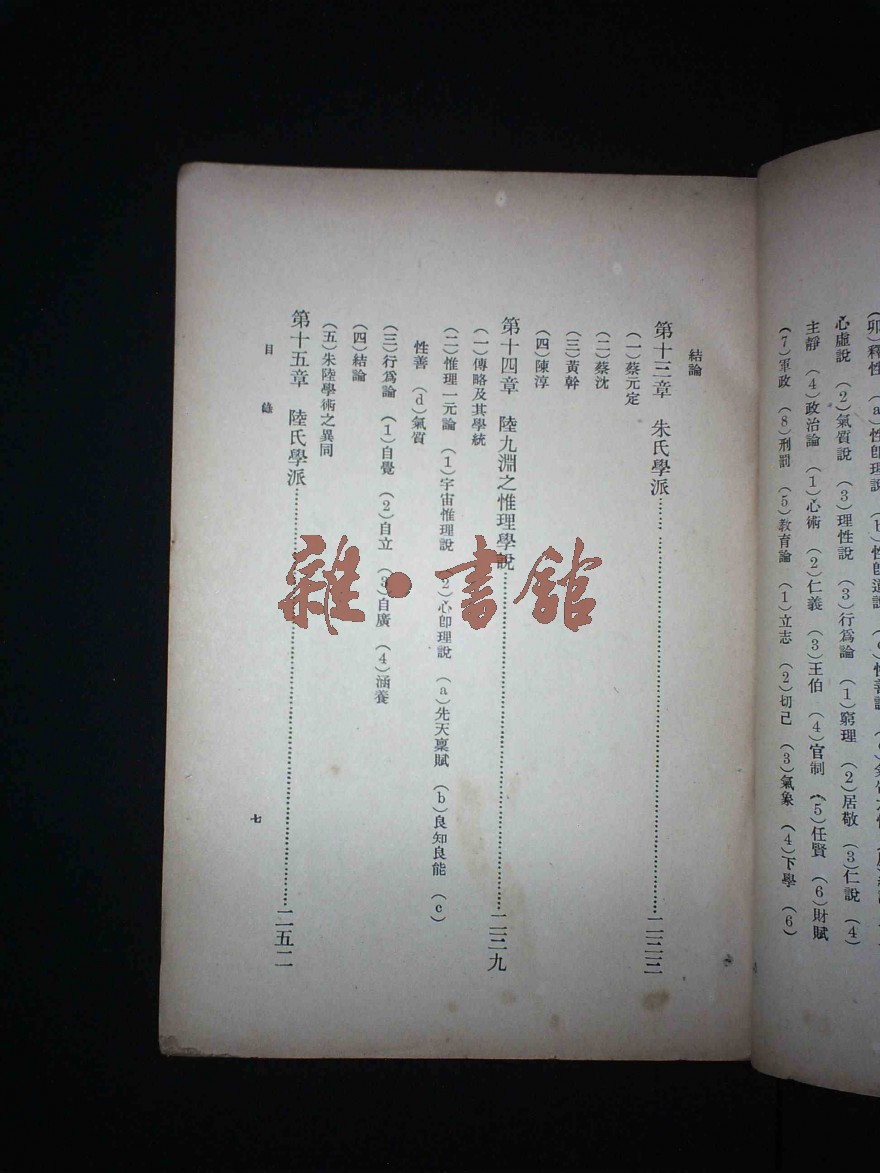 (卯)釋性 (a)性卽理說 (b)性卽道說
心虛說 (2)氣質說 (3)理性說 (3)行爲論 (1)窮理 (2)居敬 (3)仁說 (4)
主靜 (4)政治論 (1)心術 (2)仁義 (3)王伯 (4)官制 (5)任賢 (6)財賦
(7)軍政 (8)刑罰 (5)教育論 (1)立志 (2)切己 (3)氣象 (4)下學 (6)
結論
第十三章 朱氏學派……………………二二三
(一)蔡元定
(二)蔡沈
(三)黃幹
(四)陳淳
第十四章 陸九淵之惟理學說……………………二二九
(一)傳略及其學統
(二)惟理一元論 (1)宇宙惟理說 (2)心卽理說 (a)先天稟賦 (b)良知良能 (c)
性善 (d)氣質
(三)行爲論 (1)自覺 (2)自立 (3)自廣 (4)涵養
(四)結論
(五)朱陸學術之異同
第十五章 陸氏學派……………………二五二
目錄
七
雜·書館